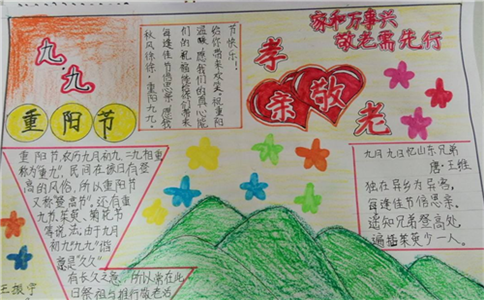 九.九
重阳节
秋风徐徐,重阳九九,
每逢佳节倍思亲,愿我
们的祝福能给你带来
温暖,愿我们的真心能
给你带来欢笑,祝重阳
节快乐!
家和万事兴
敬老需先行
孝亲敬老
重阳节,农历九月初九,二九相重
称为"重九",民间在该日有登
高的风俗,所以重阳节
又称"登高节",还有重
九节、茱萸、菊花节
等说法,由于九月
初九"九九"谐
意是"久久"
有长久之意,所以常在此
日祭祖与推行敬老活
九月九日忆山东兄弟
唐:王维
独在异乡为异客,
每逢佳节倍思亲。
遥知兄弟登高处,
遍插茱萸少一人。